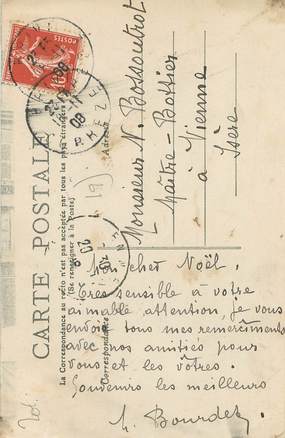 CARTE POSTALE
La Correspondance au recto n'est pas acceptée par tous les pays étrangers
(Se renseigner à la Poste)
Correspondance
Adresse
Monsieur N. Bossoutrot
Maître-Bottier
à Vienne
Isère
Mon cher Noël.
Très sensible à votre
aimable attention, je vous
envoie tous mes remerciements
avec nos amitiés pour
vous et les vôtres.
Souvenirs les meilleurs
RHONE
08